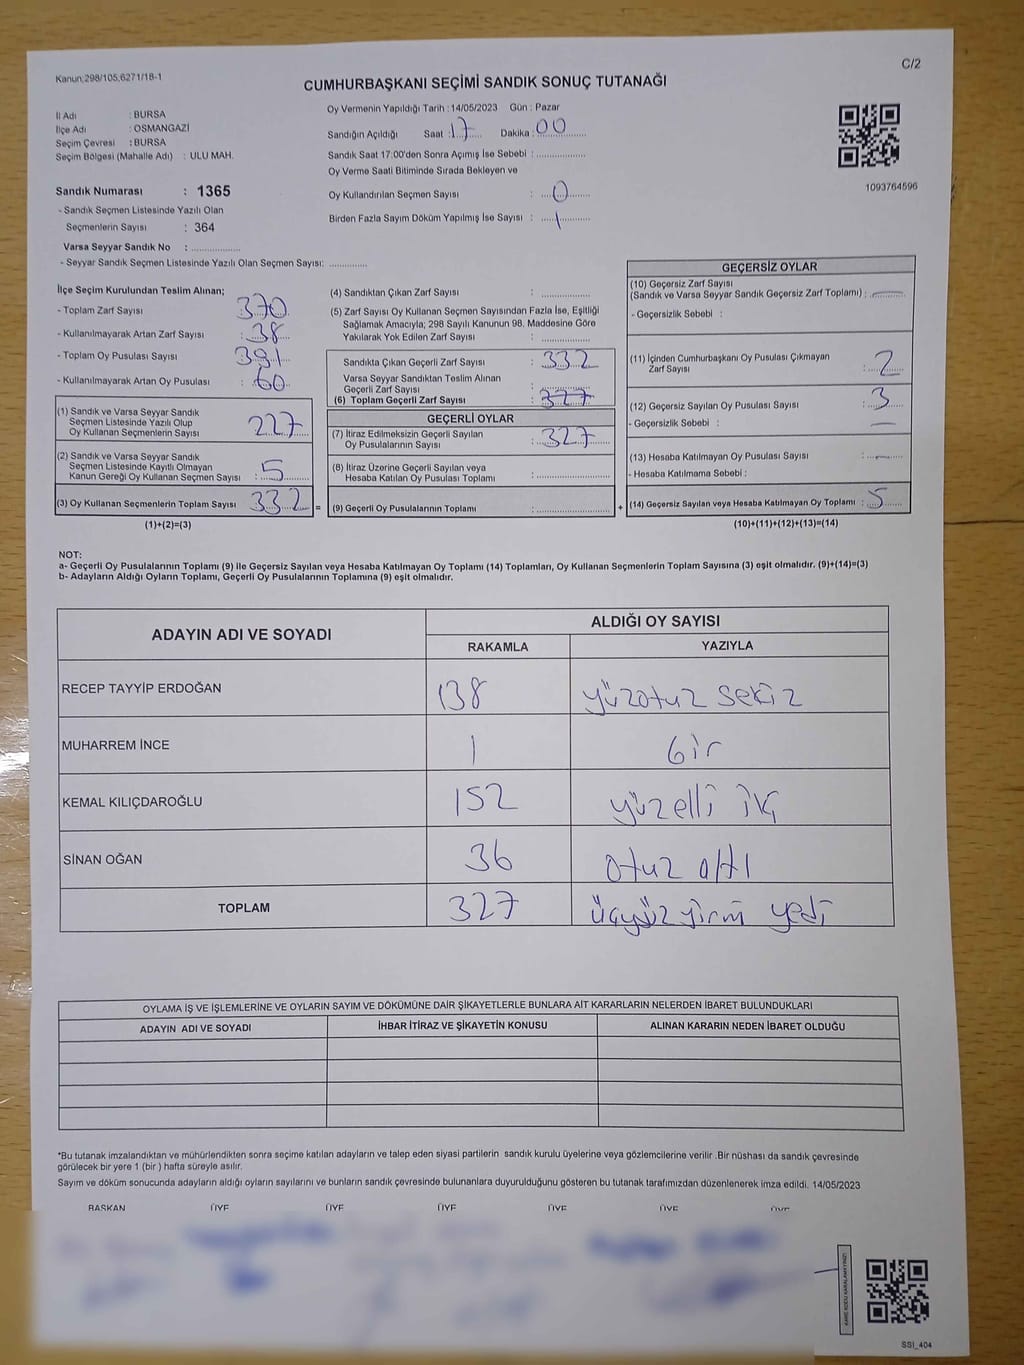 Kanun;298/105,6271/18-1
C/2
CUMHURBAŞKANI SEÇİMİ SANDIK SONUÇ TUTANAĞI
İl Adı : BURSA
İlçe Adı : OSMANGAZİ
Seçim Çevresi : BURSA
Seçim Bölgesi (Mahalle Adı) : ULU MAH.
Sandık Numarası : 1365
- Sandık Seçmen Listesinde Yazılı Olan
Seçmenlerin Sayısı : 364
Varsa Seyyar Sandık No :
- Seyyar Sandık Seçmen Listesinde Yazılı Olan Seçmen Sayısı:
Oy Vermenin Yapıldığı Tarih : 14/05/2023 Gün : Pazar
Sandığın Açıldığı Saat : 17 Dakika : 00
Sandık Saat 17:00'den Sonra Açımış İse Sebebi :
Oy Verme Saati Bitiminde Sırada Bekleyen ve
Oy Kullandırılan Seçmen Sayısı : 0
Birden Fazla Sayım Döküm Yapılmış İse Sayısı : 1
1093764596
İlçe Seçim Kurulundan Teslim Alınan;
- Toplam Zarf Sayısı : 370
- Kullanılmayarak Artan Zarf Sayısı : 38
- Toplam Oy Pusulası Sayısı : 391
- Kullanılmayarak Artan Oy Pusulası : 60
(1) Sandık ve Varsa Seyyar Sandık
Seçmen Listesinde Yazılı Olup
Oy Kullanan Seçmenlerin Sayısı : 227
(2) Sandık ve Varsa Seyyar Sandık
Seçmen Listesinde Kayıtlı Olmayan
Kanun Gereği Oy Kullanan Seçmen Sayısı : 5
(3) Oy Kullanan Seçmenlerin Toplam Sayısı : 332 =
(1)+(2)=(3)
(4) Sandıktan Çıkan Zarf Sayısı :
(5) Zarf Sayısı Oy Kullanan Seçmen Sayısından Fazla İse, Eşitliği
Sağlamak Amacıyla; 298 Sayılı Kanunun 98. Maddesine Göre
Yakılarak Yok Edilen Zarf Sayısı :
Sandıkta Çıkan Geçerli Zarf Sayısı : 332
Varsa Seyyar Sandıktan Teslim Alınan
Geçerli Zarf Sayısı :
(6) Toplam Geçerli Zarf Sayısı : 327
GEÇERLİ OYLAR
(7) İtiraz Edilmeksizin Geçerli Sayılan
Oy Pusulalarının Sayısı : 327
(8) İtiraz Üzerine Geçerli Sayılan veya
Hesaba Katılan Oy Pusulası Toplamı :
(9) Geçerli Oy Pusulalarının Toplamı : +
GEÇERSİZ OYLAR
(10) Geçersiz Zarf Sayısı
(Sandık ve Varsa Seyyar Sandık Geçersiz Zarf Toplamı) : —
- Geçersizlik Sebebi :
(11) İçinden Cumhurbaşkanı Oy Pusulası Çıkmayan
Zarf Sayısı : 2
(12) Geçersiz Sayılan Oy Pusulası Sayısı : 3
- Geçersizlik Sebebi : —
(13) Hesaba Katılmayan Oy Pusulası Sayısı : —
- Hesaba Katılmama Sebebi :
(14) Geçersiz Sayılan veya Hesaba Katılmayan Oy Toplamı : 5
(10)+(11)+(12)+(13)=(14)
NOT:
a- Geçerli Oy Pusulalarının Toplamı (9) ile Geçersiz Sayılan veya Hesaba Katılmayan Oy Toplamı (14) Toplamları, Oy Kullanan Seçmenlerin Toplam Sayısına (3) eşit olmalıdır. (9)+(14)=(3)
b- Adayların Aldığı Oyların Toplamı, Geçerli Oy Pusulalarının Toplamına (9) eşit olmalıdır.
ADAYIN ADI VE SOYADI ALDIĞI OY SAYISI
RAKAMLA YAZIYLA
RECEP TAYYİP ERDOĞAN 138 yüzotuz sekiz
MUHARREM İNCE 1 bir
KEMAL KILIÇDAROĞLU 152 yüzelli iki
SİNAN OĞAN 36 otuz altı
TOPLAM 327 üçyüzyirmi yedi
OYLAMA İŞ VE İŞLEMLERİNE VE OYLARIN SAYIM VE DÖKÜMÜNE DAİR ŞİKAYETLERLE BUNLARA AİT KARARLARIN NELERDEN İBARET BULUNDUKLARI
ADAYIN ADI VE SOYADI İHBAR İTİRAZ VE ŞİKAYETİN KONUSU ALINAN KARARIN NEDEN İBARET OLDUĞU
*Bu tutanak imzalandıktan ve mühürlendikten sonra seçime katılan adayların ve talep eden siyasi partilerin sandık kurulu üyelerine veya gözlemcilerine verilir .Bir nüshası da sandık çevresinde
görülecek bir yere 1 (bir ) hafta süreyle asılır.
Sayım ve döküm sonucunda adayların aldığı oyların sayılarını ve bunların sandık çevresinde bulunanlara duyurulduğunu gösteren bu tutanak tarafımızdan düzenlenerek imza edildi. 14/05/2023
BAŞKAN ÜYE ÜYE ÜYE ÜYE ÜYE ÜYE
SSİ_404